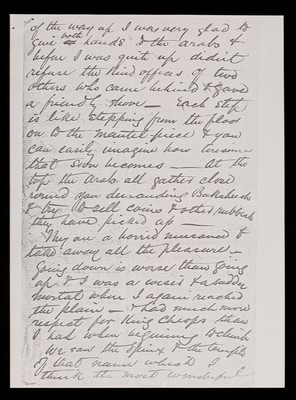 of the way up I was very glad to
give both hands to the Arabs &
before I was quite up didn't
refuse the kind offices of two
others who came behind & gave
a friendly shove — Each step
is like stepping from the floor
on to the mantel piece & you
can easily imagine how tiresome
that soon becomes — At the
top the Arabs all gather close
round you demanding Baksheesh
& try to sell coins & other rubbish
they have picked up —
They are a horrid nuisance &
take away all the pleasure —
Going down is worse than going
up & I was a wiser & a sadder
mortal when I again reached
the plain — & had much more
respect for King Cheops than
I had when beginning to climb
We saw the Sphinx & the temple
of that name which I
think the most wonderful